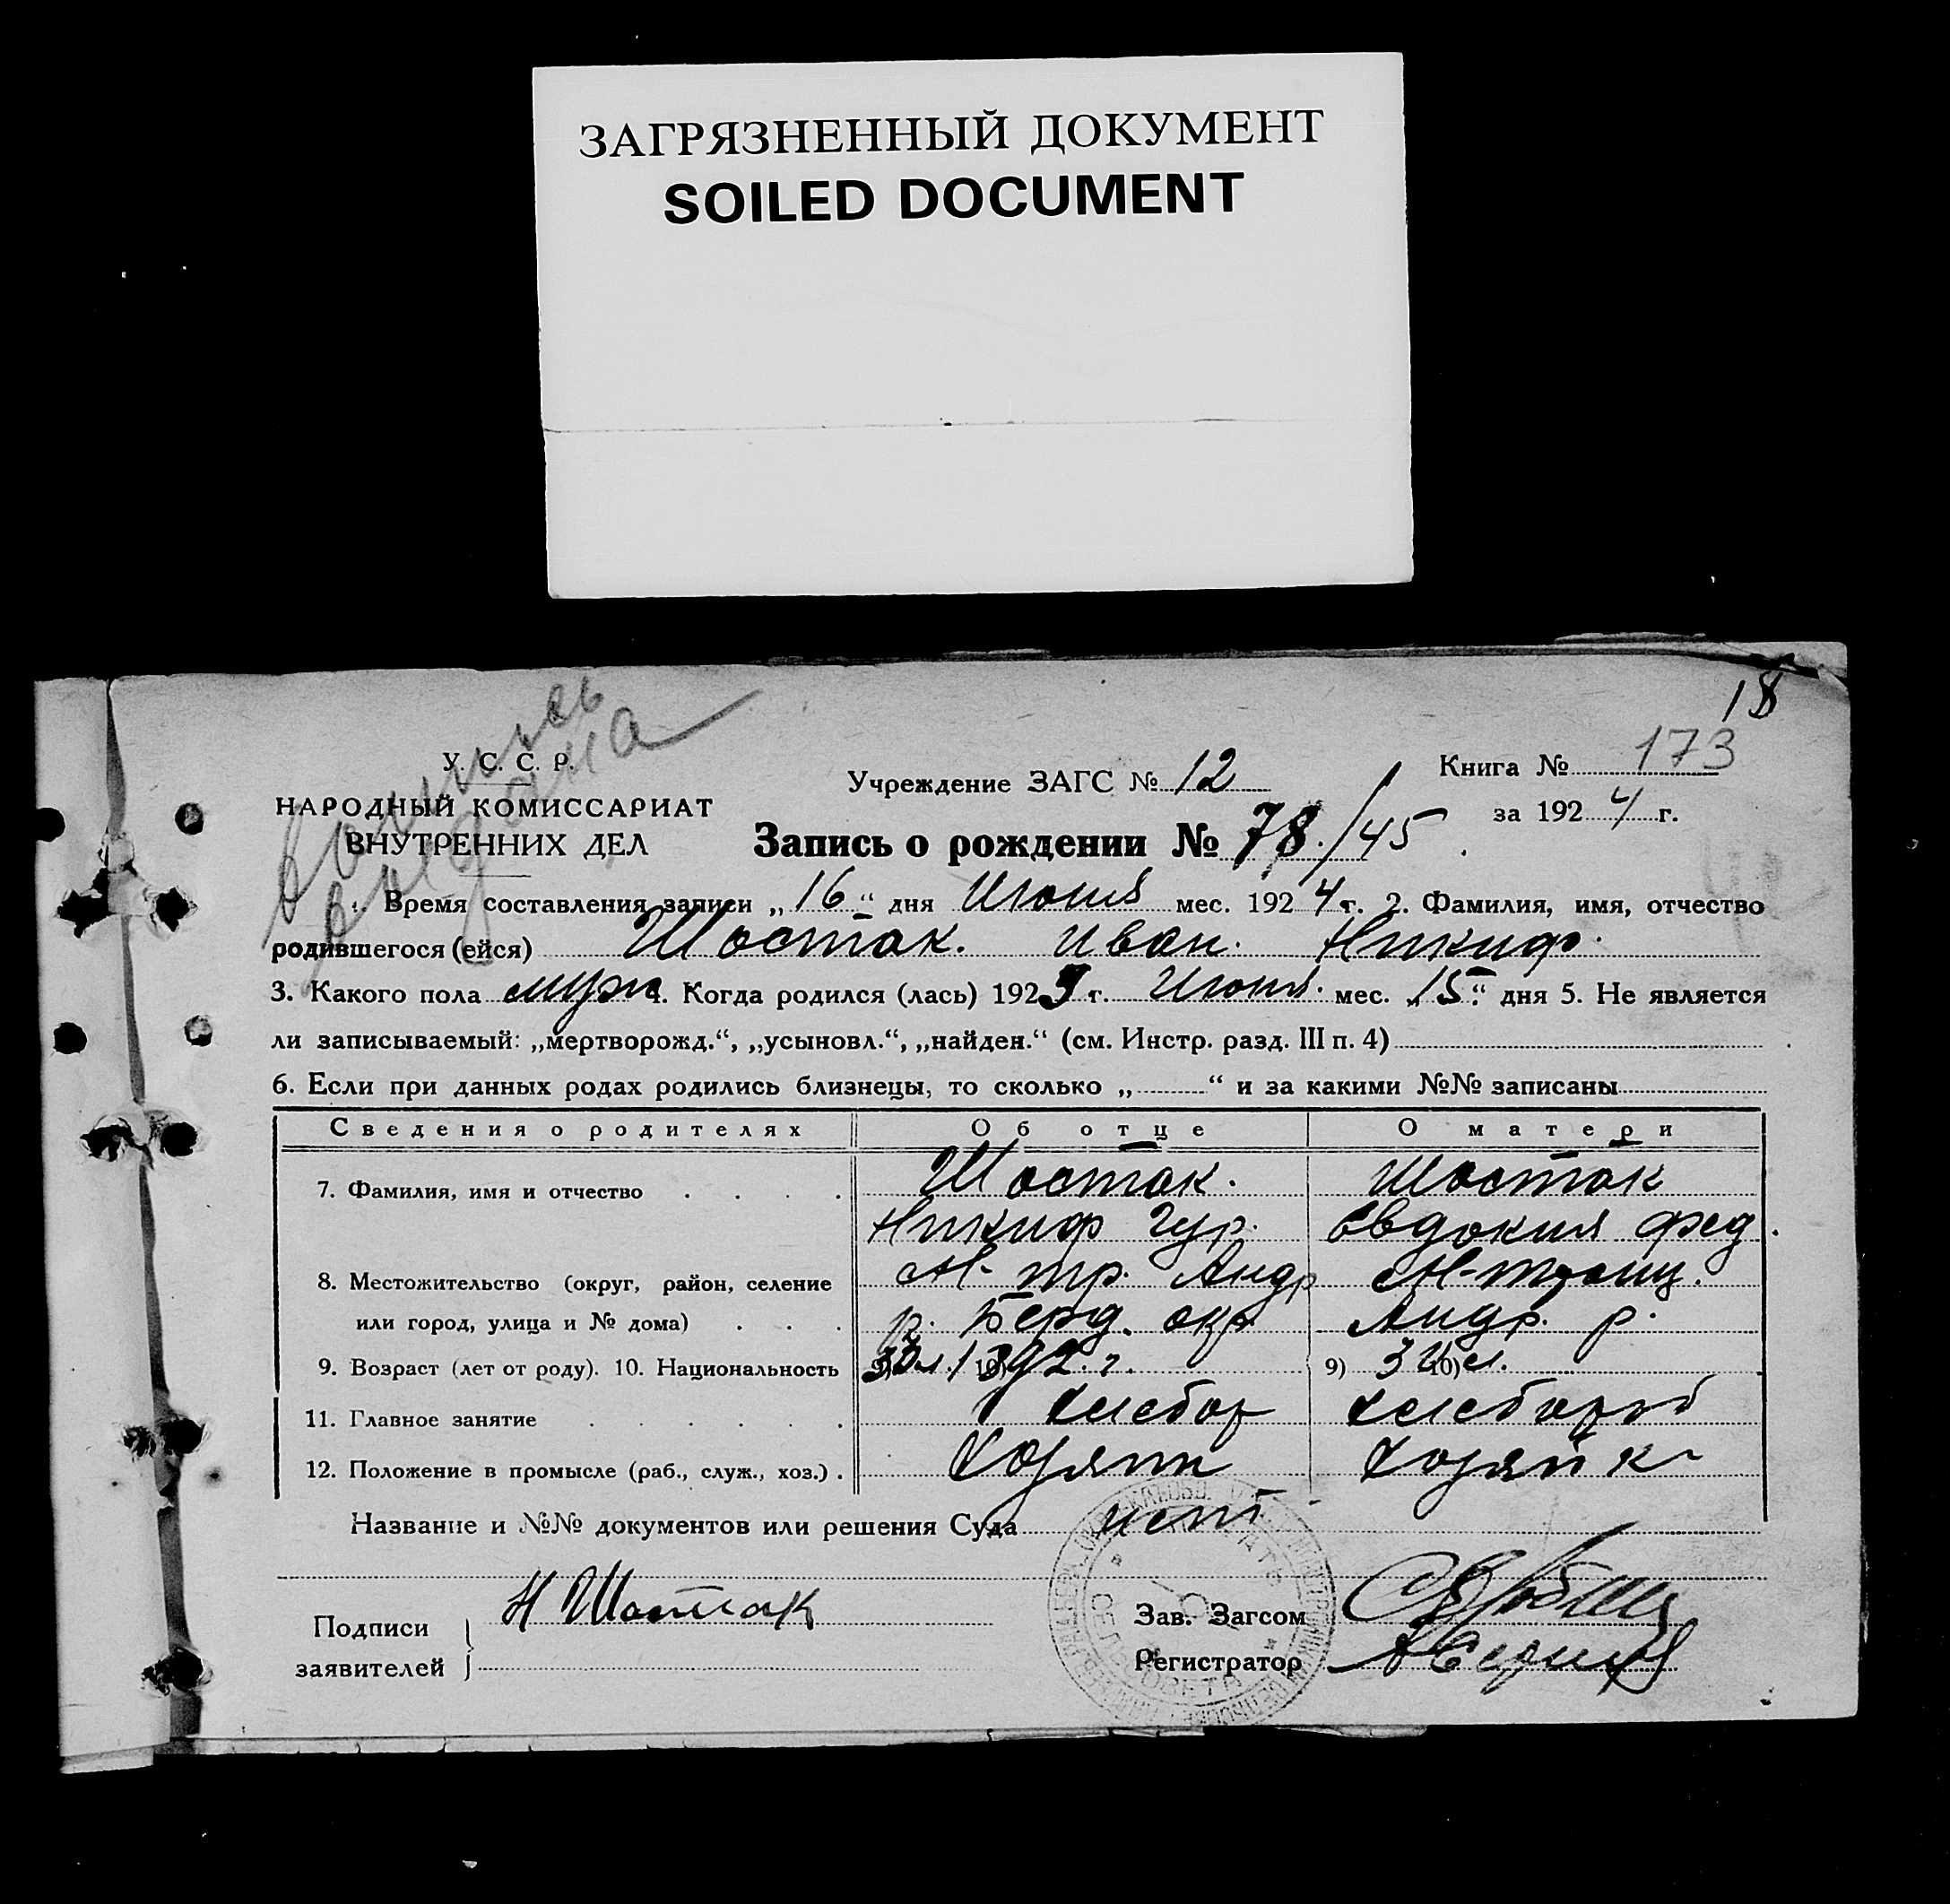 ЗАГРЯЗНЕННЫЙ ДОКУМЕНТ
SOILED DOCUMENT
18
173
выпись
выдана
У. С. С. Р.
НАРОДНЫЙ КОМИССАРИАТ
ВНУТРЕННИХ ДЕЛ
Учреждение ЗАГС № 12
Книга №
за 1924 г.
Запись о рождении № 78./45
Время составления записи „16“ дня Июня мес. 1924 г. 2. Фамилия, имя, отчество
родившегося (ейся) Шостак. Иван. Никиф.
3. Какого пола муж 4. Когда родился (лась) 192 г. Июня. мес. „15“ дня 5. Не является
ли записываемый: „мертворожд.“, „усыновл.“, „найден.“ (см. Инстр. разд. III п. 4)
6. Если при данных родах родились близнецы, то сколько „ “ и за какими №№ записаны
Сведения о родителях Об отце О матери
7. Фамилия, имя и отчество Шостак. Шостак
Никиф Гур. Евдокия Фед.
8. Местожительство (округ, район, селение М-тр. Андр М-троиц.
или город, улица и № дома) р. Берд. окр Андр. р.
9. Возраст (лет от роду). 10. Национальность 9) 10) 9) 10)
11. Главное занятие хлебор хлебороб
12. Положение в промысле (раб., служ., хоз.) Хозяин Хозяйк
Название и №№ документов или решения Суда нет
Подписи
заявителей
Н Шостак
Зав. Загсом
Регистратор